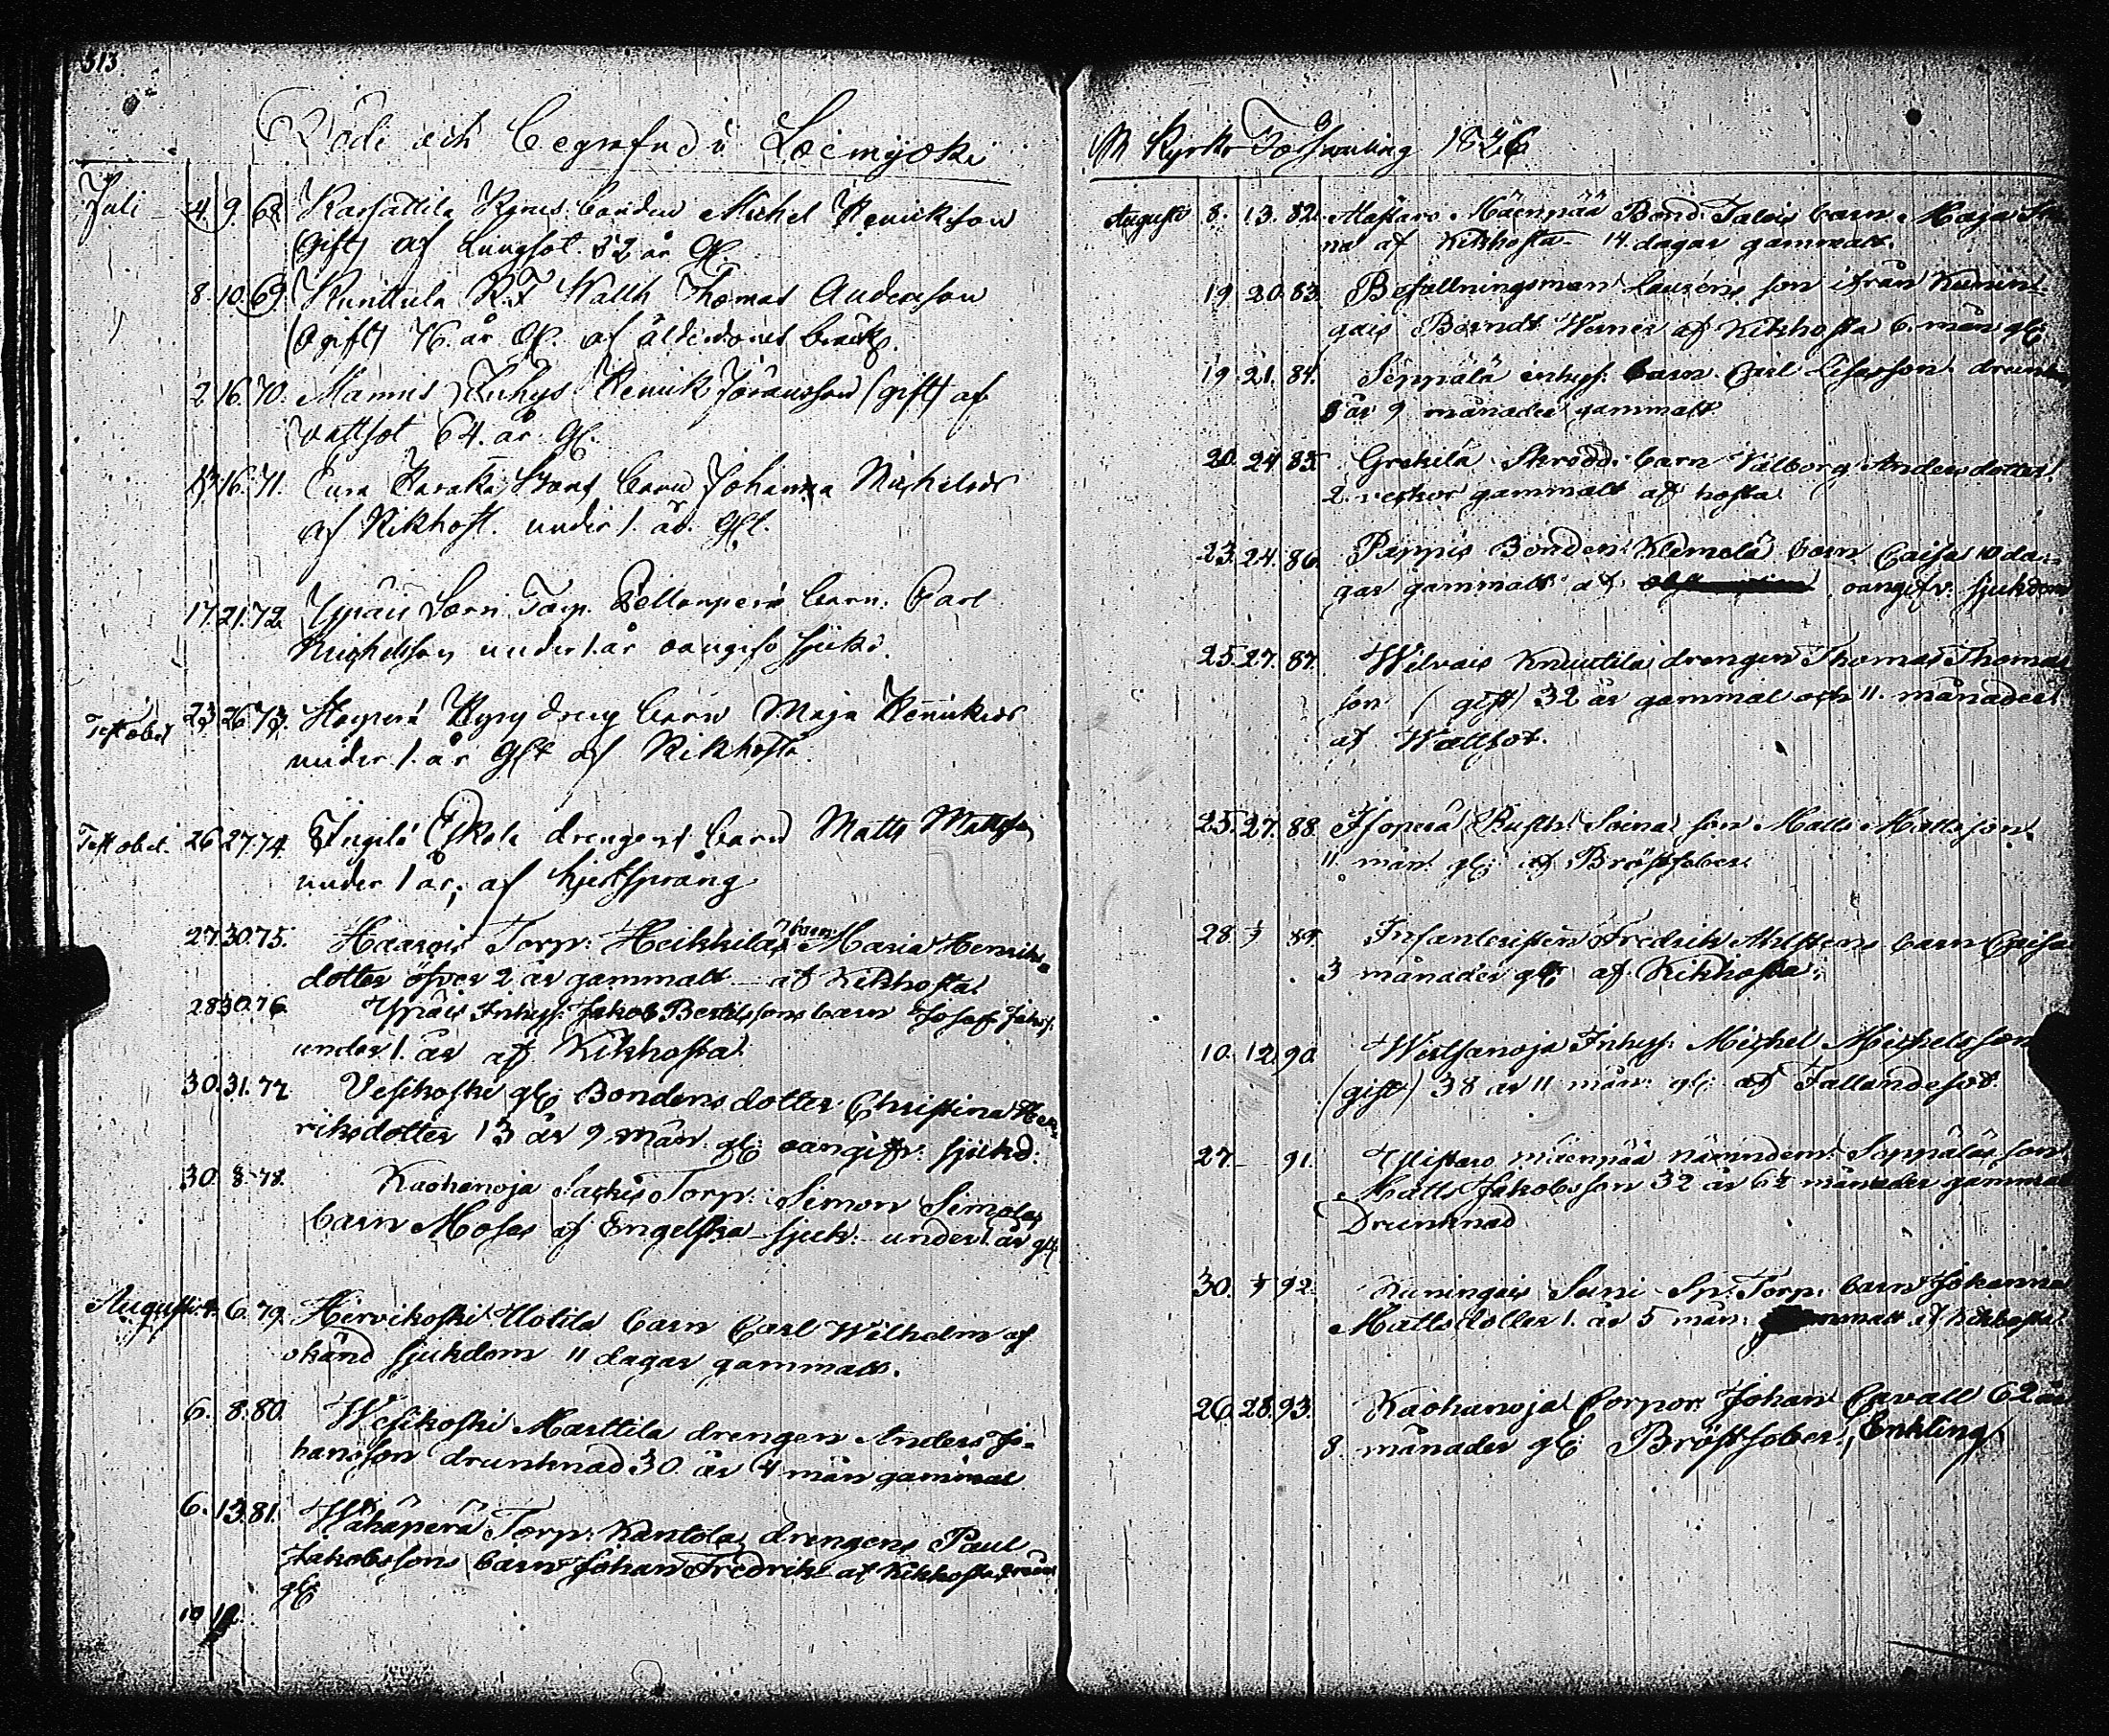 313
Döde och begrafne i Loimijoki
Juli 4. 9. 68. Karsattila Bondens Michel Henrikson
(Gift) af Lungsot 52 år Gl.
8. 10. 69. Kunttula R.F. Wallh Thomas Andersson
(ogift) 76. år Gl. af ålderdoms bräckl.
2 16. 70. Mannis Inhys Henrik Jöransson (gift) af
vattsot 64. år Gl.
13 16. 71. barn Johanna Michelsdr
af Kikhost. under 1. år. Gl.
17. 21. 72. Ypäis Torp. barn Carl
Michelsson under 1. år oangifv sjukd.
Test obel 23 26 73. dreng barn Maja Henriksdr
under 1. år Glt af Kikhosta.
Test obel. 26 27. 74. Eskola drengens barn Matts Mattsson
under 1 år, af hjertsprång
27. 30. 75. Haarois Torp: Heikkiläs barn Maria Henriks
dotter öfver 2 år gammalt af Kikhosta
28 30. 76. Ypäis Inhys: Jakob Bertilssons barn Josef Jakos.
under 1. år af Kikhosta
30. 31. 77 Vesikoski gl: Bondens dotter Christina Hen=
riksdotter 13 år 9 mån gl: oangifv: sjukd:
30. 8. 78. Kaohanoja Torp: Simon Simolas
barn Moses af Engelska-sjuk: under 1. år gl:
Augusti. 4. 6. 79. Hirvikoski Uotila barn Carl Wilhelm af
okänd sjukdom 11 dagar gammalt.
6. 8. 80. Wesikoski Marttila drengen Anders Jo=
hansson drunknad 30 år 4 mån gammal
6. 13. 81. Wähäperä Torp: Kantola drengens Paul
Jakobssons barn Johan Fredrik af Kikhosta
gl:
10 12
M Kyrko Församling 1826
Augusti 8. 13. 82. Mäenpää Bond. Talois barn Maja Sti
na af Kikhosta 14. dagar gammalt.
19. 20. 83. Befallningsman Lauréns son ifrån Kunin
gais Berndt Werner af Kikhosta 6. mån gl:
19. 21. 84. Seppälä inhys: barn Carl drunkn
3 år 9 månader gammalt
20. 24 85. Grekilä Skrädd: barn Valborg Andersdotter
2. veckor gammalt af hosta
23. 24. 86. Pappis Bonden Klemolä barn Caisa 10 da=
gar gammalt af oangifv: sjukdom
25. 27. 87. Wilvais Knuutila drengen Thomas Thomas
son (gift) 32 år gammal och 11. månader
af Wattsot.
25. 27. 88. Isoperä Rusth: Soina son Matts Mattsson
11 mån: gl: af Bröstfeber
28. 89. Infanteristen Fredrik Ahlstens barn Caisa
3 månader gl: af Kikhosta:
10. 12. 90. Wirtsanoja Inhys: Michel Michelsson
(gift) 38 år 11 mån: gl: af Fallandesot
27. 91. Ylistaro mäenpää nämndem: Seppäläs son
Matts Jakobsson 32 år 6½ månader gammal
Drunknad
30. 92. Kuningais Suni Sp: Torp: barn Johanna
Mattsdotter 1. år 5 mån: gammalt af kikhosta
26. 28. 93. Kaohanoja Corpor: Johan Cavall 62 år
8. månader gl: Bröstfeber, Enkling